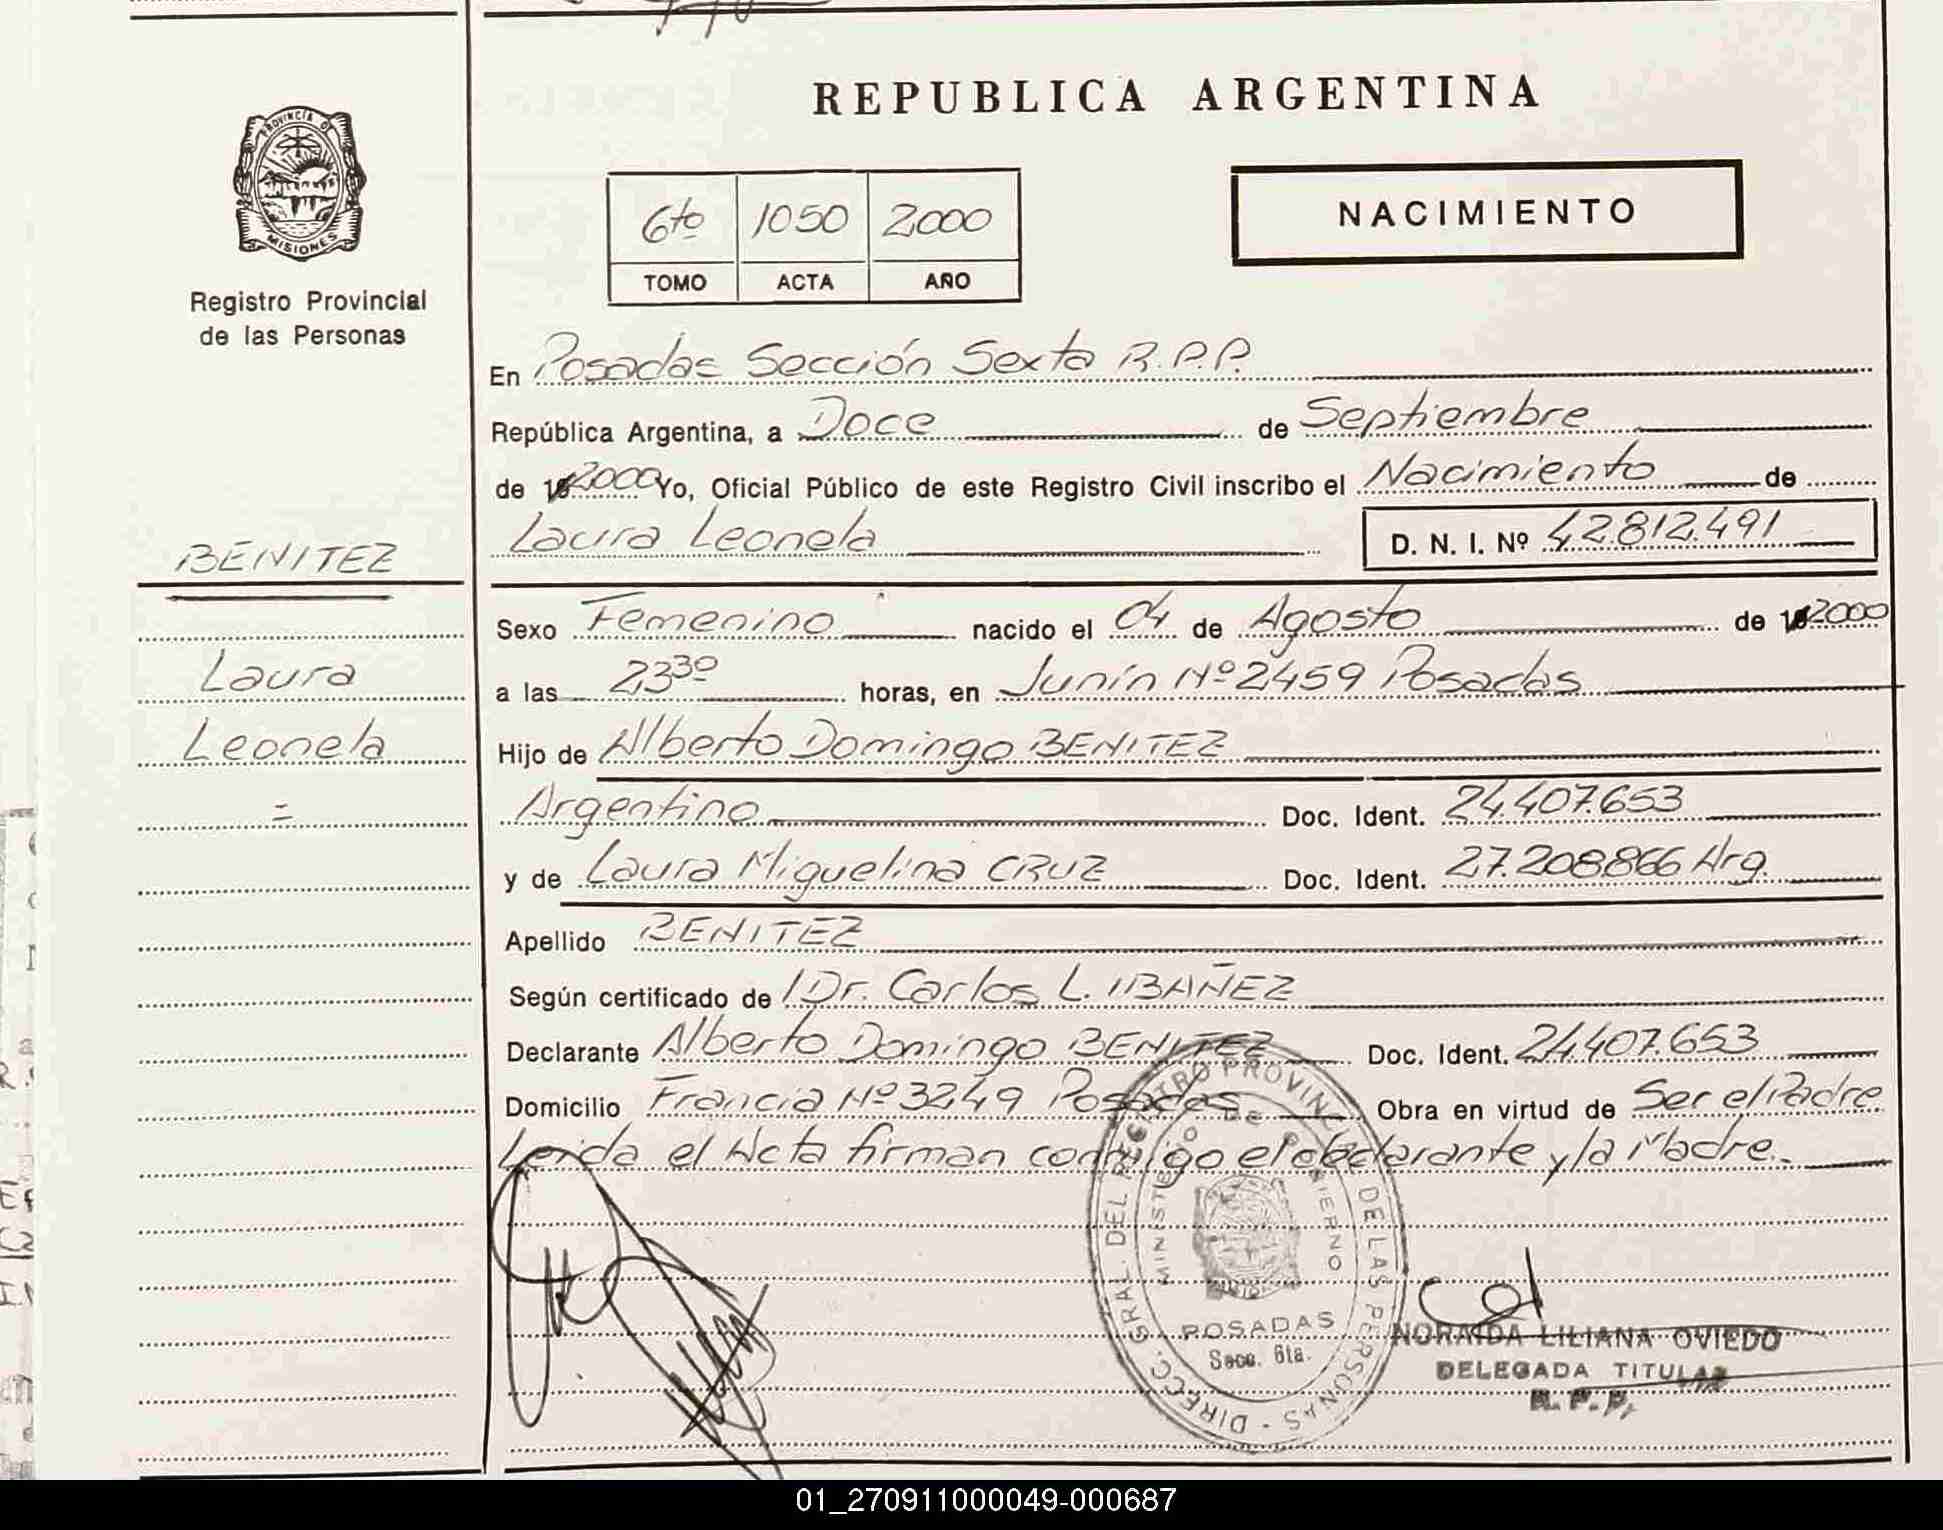 REPUBLICA ARGENTINA
PROVINCIA D
MISIONES
Registro Provincial
de las Personas
6to 1050 2000
TOMO ACTA AÑO
NACIMIENTO
En Posadas Sección Sexta R.P.P.
República Argentina, a Doce de Septiembre
de 2000 Yo, Oficial Público de este Registro Civil inscribo el Nacimiento de
Laura Leonela D. N. I. Nº 42.812.491
BENITEZ
Laura
Leonela
=
Sexo Femenino nacido el 04 de Agosto de 2000
a las 23³⁰ horas, en Junín Nº 2459 Posadas
Hijo de Alberto Domingo BENITEZ
Argentino Doc. Ident. 24.407.653
y de Laura Miguelina CRUZ Doc. Ident. 27.208.866 Arg.
Apellido BENITEZ
Según certificado de Dr. Carlos L. IBAÑEZ
Declarante Alberto Domingo BENITEZ Doc. Ident. 24.407.653
Domicilio Francia Nº 3249 Posadas Obra en virtud de Ser el Padre
Leida el Acta firman conmigo el declarante y la Madre.
DIRECC. GRAL. DEL REGISTRO PROVINC. DE LAS PERSONAS
MINISTERIO DE GOBIERNO
POSADAS
Secc. 6ta.
NORAIDA LILIANA OVIEDO
DELEGADA TITULAR
R. P. P.
01_270911000049-000687